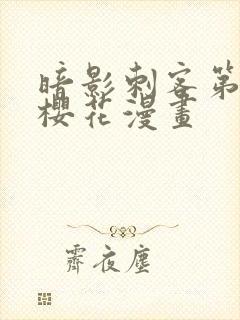 暗影刺客第
櫻花漫畫
霽夜塵